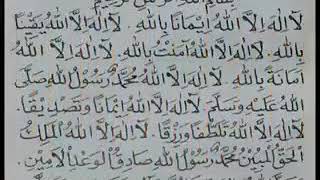 لَآ اِلٰهَ اِلَّا اللّٰهُ اِيْمَانًا بِاللّٰهِ. لَآ اِلٰهَ اِلَّا اللّٰهُ يَقِيْنًا
بِاللّٰهِ. لَآ اِلٰهَ اِلَّا اللّٰهُ اٰمَنْتُ بِاللّٰهِ. لَآ اِلٰهَ اِلَّا اللّٰهُ
اَمَانَةً بِاللّٰهِ. لَآ اِلٰهَ اِلَّا اللّٰهُ مُحَمَّدٌ رَسُوْلُ اللّٰهِ صَلَّى
اللّٰهُ عَلَيْهِ وَسَلَّمَ. لَآ اِلٰهَ اِلَّا اللّٰهُ اِيْمَانًا وَتَصْدِيْقًا.
لَآ اِلٰهَ اِلَّا اللّٰهُ تَلَطُّفًا وَرِزْقًا. لَآ اِلٰهَ اِلَّا اللّٰهُ الْمَلِكُ
الْحَقُّ الْمُبِيْنُ مُحَمَّدٌ رَسُوْلُ اللّٰهِ صَادِقُ الْوَعْدِ الْاَمِيْنِ.